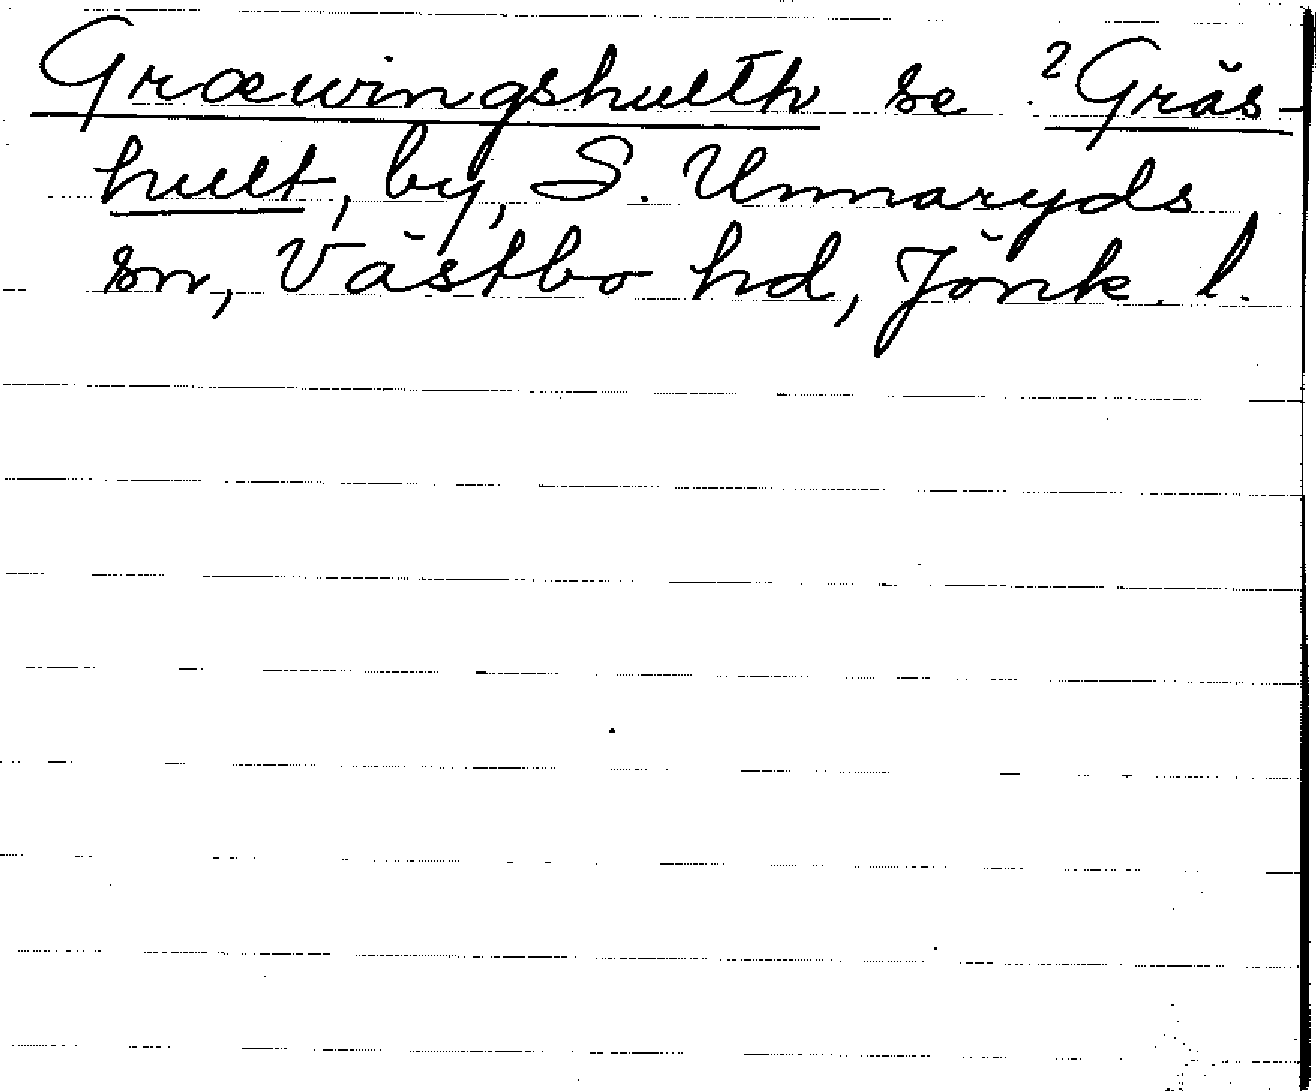 Græwingshulth se ²Gräs-
hult, by, S. Unnaryds
sn, Västbo hd, Jönk. l.